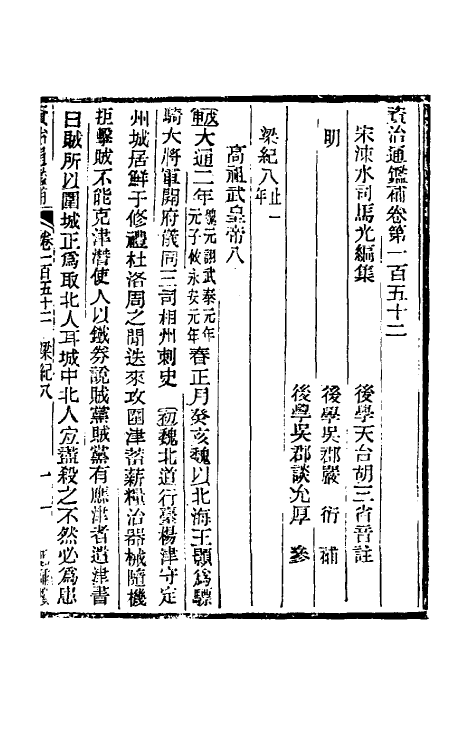 資治通鑑補卷第一百五十二
宋涑水司馬光編集
後學天台胡三省音註
明
後學吳郡嚴衍補
後學吳郡談允厚參
梁紀八止一年
高祖武皇帝八
大通二年魏元詡武泰元年元子攸永安元年春正月癸亥魏以北海王顥爲驃
騎大將軍開府儀同三司相州刺史 初魏北道行臺楊津守定
州城居鮮于修禮杜洛周之間迭來攻圍津蓄薪糧治器械隨機
拒擊賊不能克津潛使人以鐵券說賊黨賊黨有應津者遺津書
曰賊所以圍城正爲取北人耳城中北人宜盡殺之不然必爲患
資治通鑑補 卷一百五十二 梁紀八 一